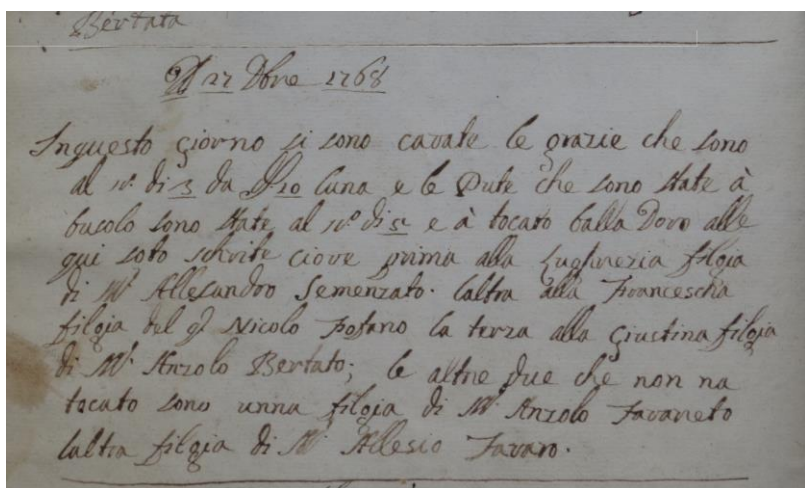 Bertata
Adi 27 Xbre 1768
Inquesto giorno si sono cavate le grazie che sono
al n.º di 3 da D.ti 10 luna e le Pute che sono state à
bucolo sono state al n.º di 5 e à tocato balla Doro alle
qui soto schrite ciove prima alla Lughrezia filgia
di M.r Allesandro Semenzato. laltra alla Francescha
filgia del q.m Nicolo Fofano la terza alla Giustina filgia
di M.r Anzolo Bertato; le altre due che non na
tocato sono unna filgia di M.r Anzolo Favareto
laltra filgia di M.r Allesio Favaro.